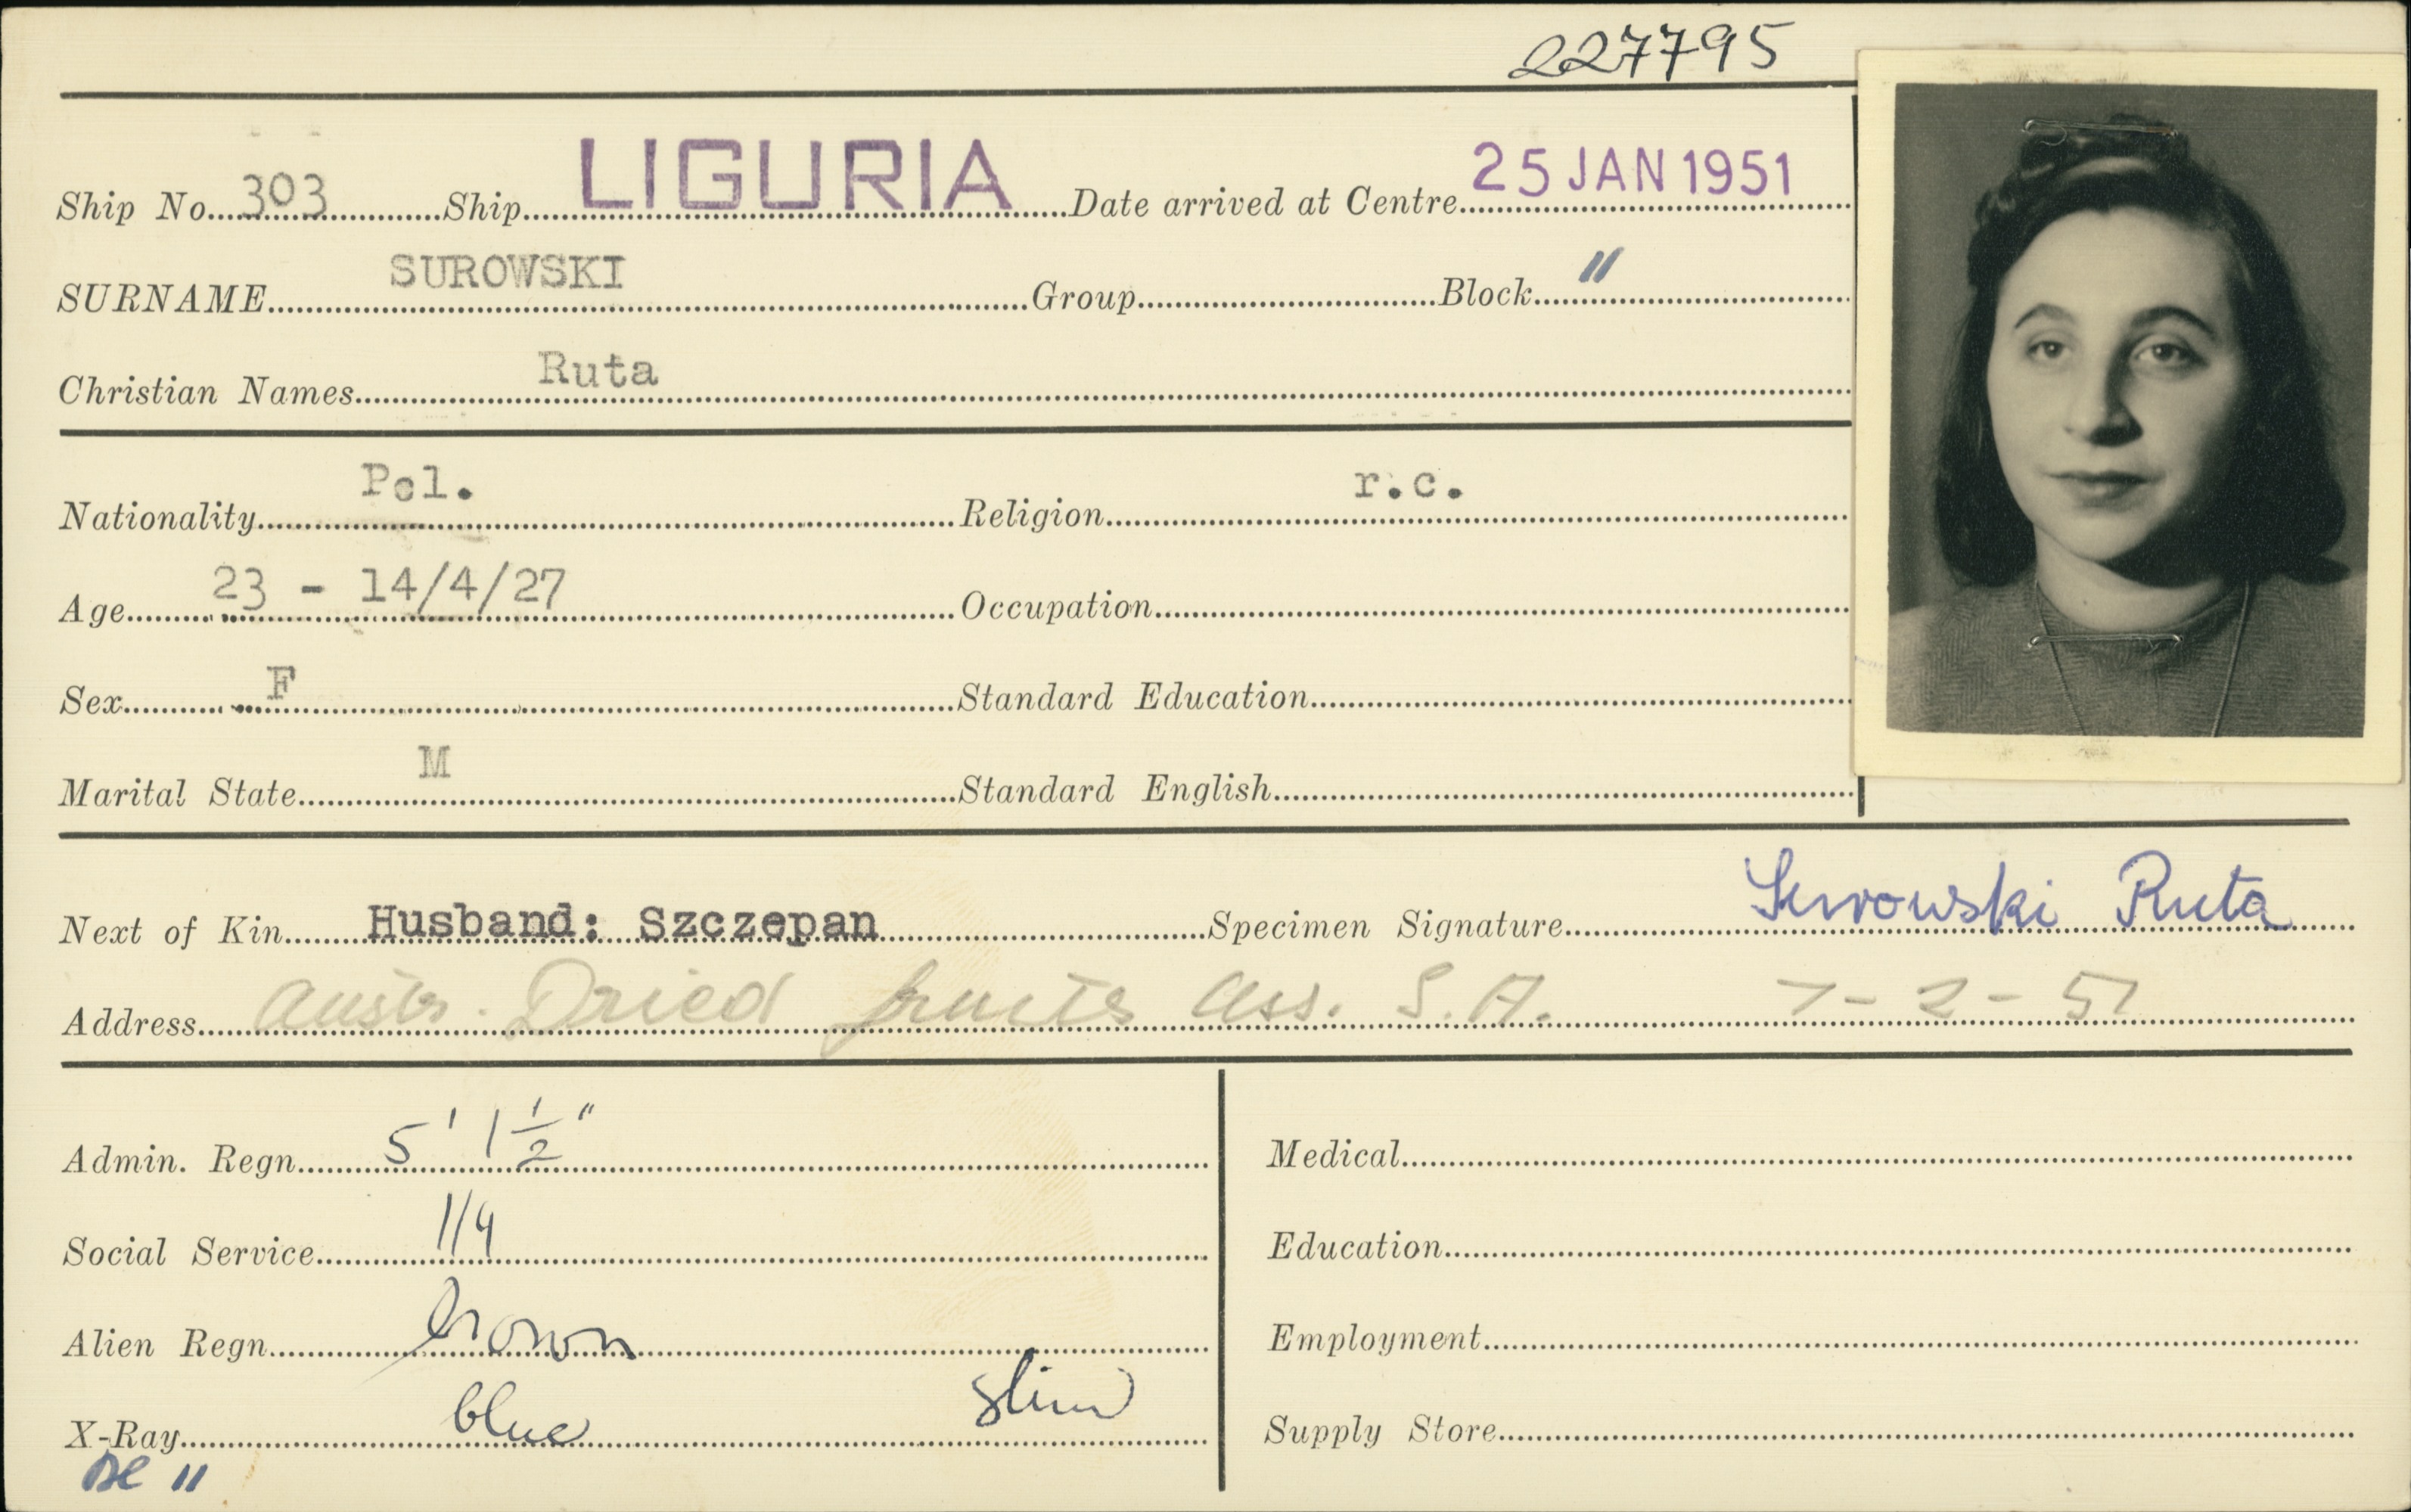 227795
Ship No. 303 Ship LIGURIA Date arrived at Centre 25 JAN 1951
SURNAME SUROWSKI Group Block 11
Christian Names Ruta
Nationality Pol. Religion r.c.
Age 23 - 14/4/27 Occupation
Sex F Standard Education
Marital State M Standard English
Next of Kin Husband: Szczepan Specimen Signature Surowski Ruta
Address Austr. Dried fruits Ass. S.A. 7-2-51
Admin. Regn 5' 1 1/2" Medical
Social Service Education
Alien Regn brown Employment
X-Ray blue slim Supply Store
Bl 11